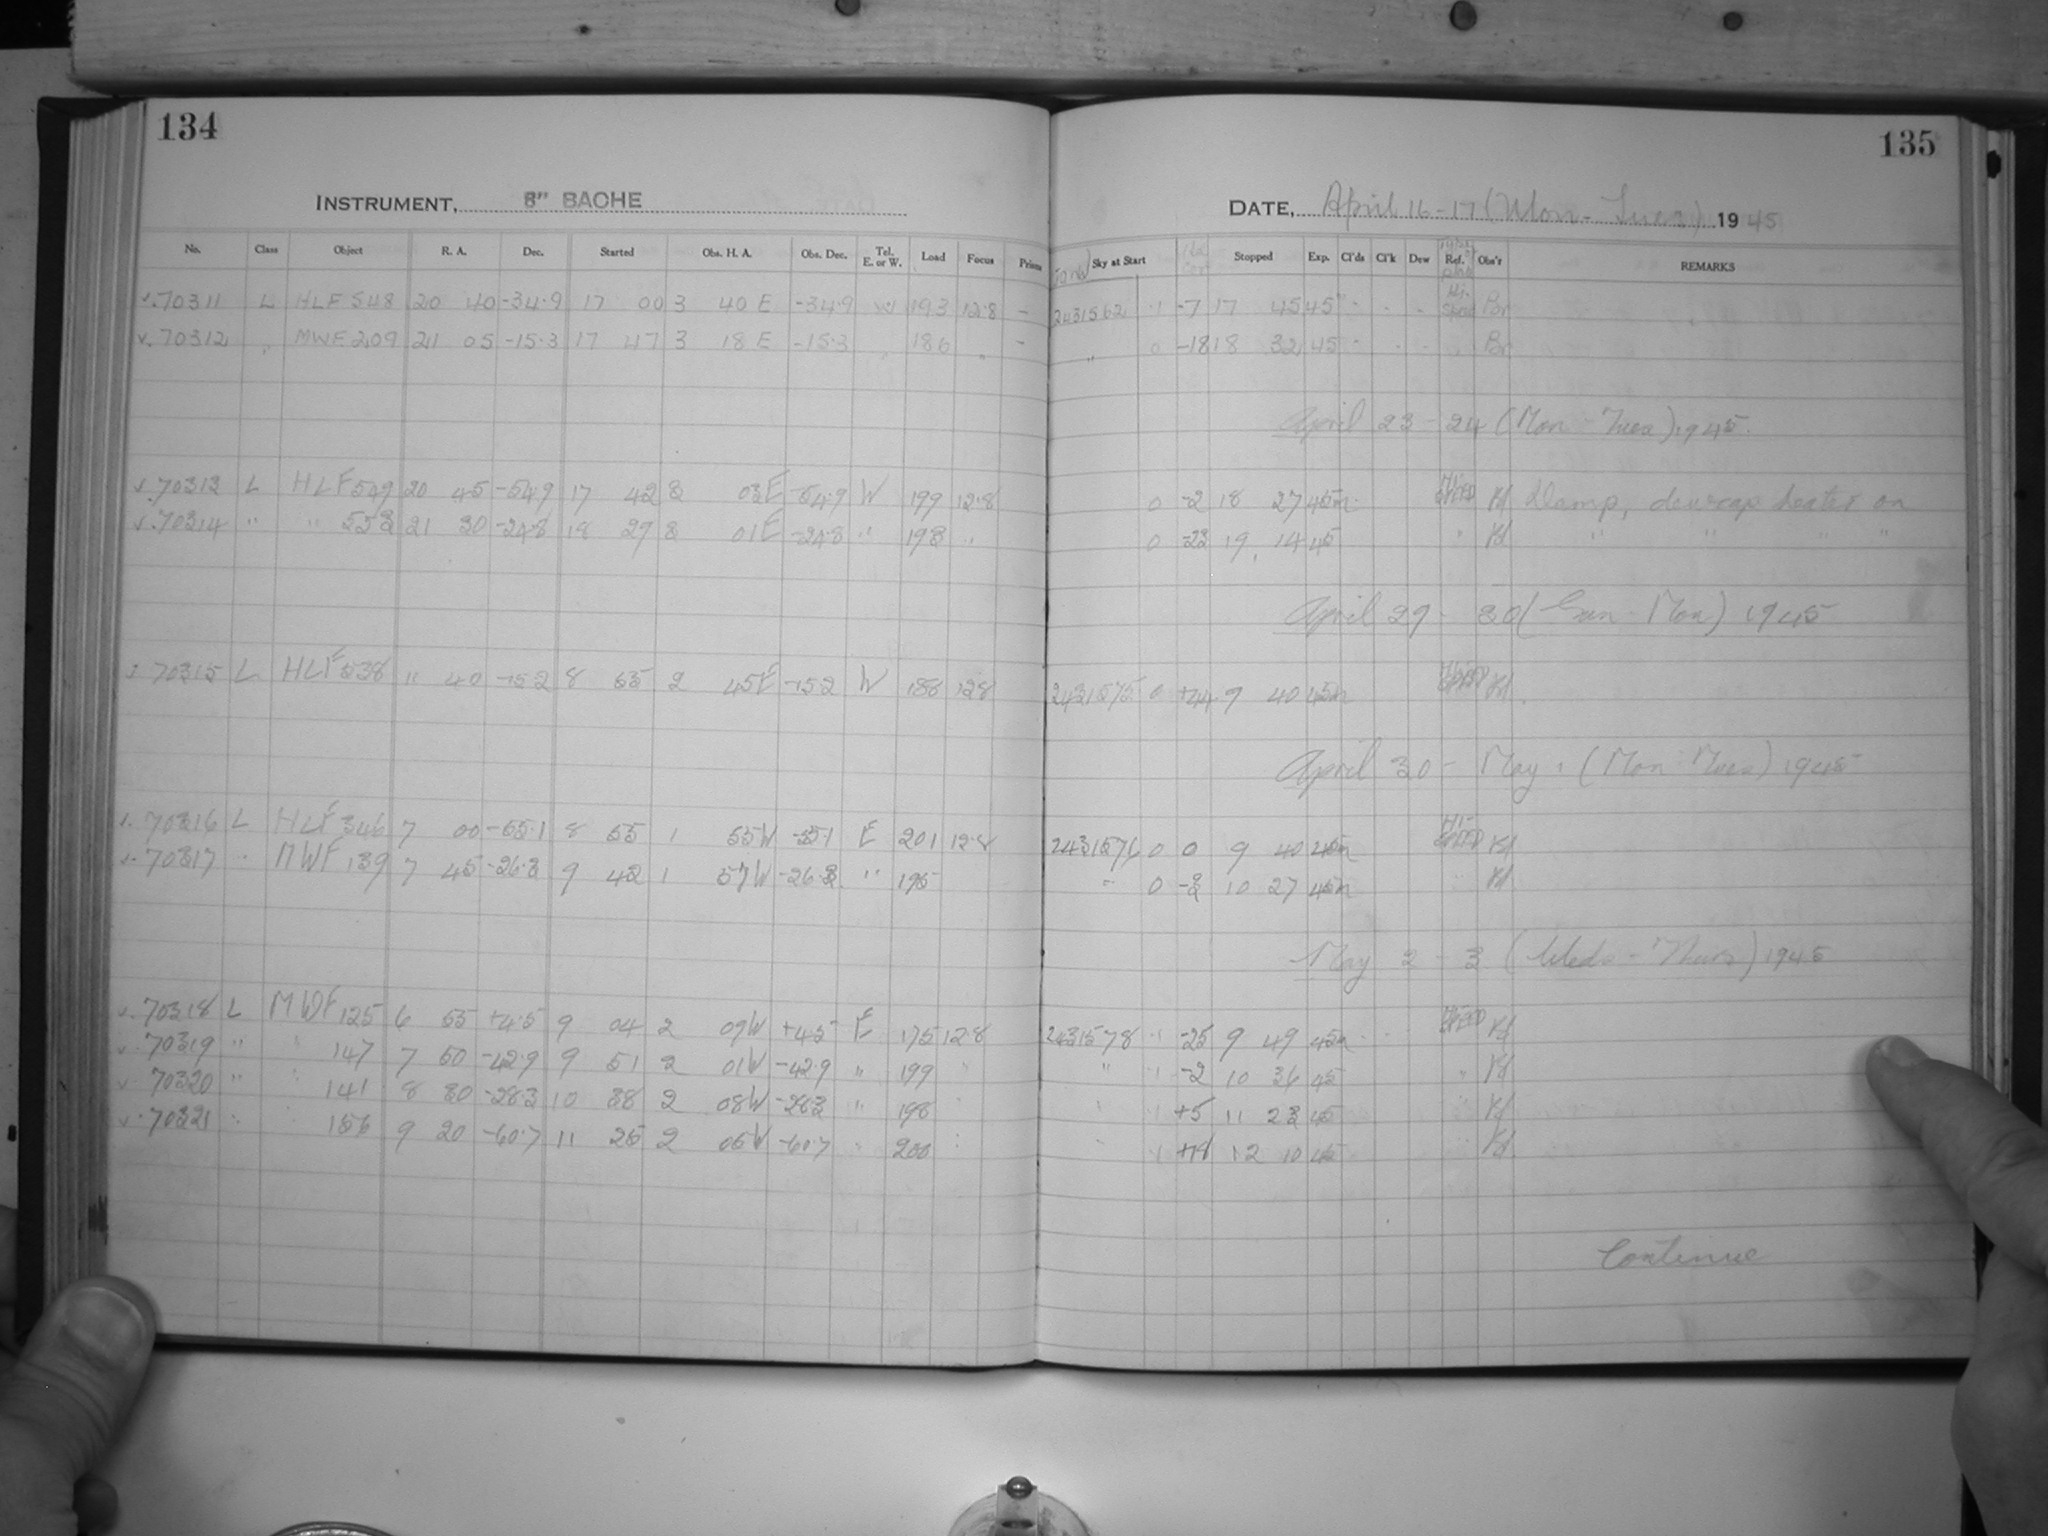 134
135
INSTRUMENT, 8" BACHE
DATE, April 16-17 (Mon - Tues) 1945
No. Class Object R. A. Dec. Started Obs. H. A. Obs. Dec. Tel. E. or W. Load Focus Prism Sky at Start Stopped Exp. Cl'ds Cl'k Dew Ref. Obs'r REMARKS
v. 70311 L HLF 548 20 40 -34.9 17 00 3 40 E -34.9 W 193 12.8 - 2431562 .1 -7 17 45 45 Hi-Speed Br
v. 70312 " MWF 209 21 05 -15.3 17 47 3 18 E -15.3 " 186 " - " 0 -18 18 32 45 " Br
April 23 - 24 (Mon - Tues) 1945.
v. 70313 L HLF 549 20 45 -54.9 17 42 3 03E -54.9 W 199 12.8 0 -2 18 27 45m Kd Damp, dewcap heater on
v. 70314 " " 553 21 30 -24.8 18 29 3 01E -24.8 " 193 " 0 -23 19 14 45 " Kd " " " "
April 29 - 30 (Sun - Mon) 1945
v. 70315 L HLF 538 11 40 -15.2 8 55 2 45E -15.2 W 188 12.8 2431575 0 +44 9 40 45m Kd
April 30 - May 1 (Mon - Tues) 1945
v. 70316 L HLF 346 7 00 -55.1 8 55 1 55W -55.1 E 201 12.8 2431576 0 0 9 40 45m Hi-Speed Kd
v. 70317 " MWF 139 7 45 -26.3 9 42 1 57W -26.3 " 195 " 0 -3 10 27 45m Kd
May 2 - 3 (Weds - Thurs) 1945
v. 70318 L MWF 125 6 55 +4.5 9 04 2 09W +4.5 E 175 12.8 2431578 .1 -25 9 49 45m Kd
v. 70319 " " 147 7 50 -42.9 9 51 2 01W -42.9 " 199 " " .1 -2 10 36 45 " Kd
v. 70320 " " 141 8 30 -28.3 10 38 2 08W -28.3 " 198 " " .1 +5 11 23 45 Kd
v. 70321 " " 156 9 20 -60.7 11 25 2 05W -60.7 " 200 " " .1 12 10 45 Kd
Continue